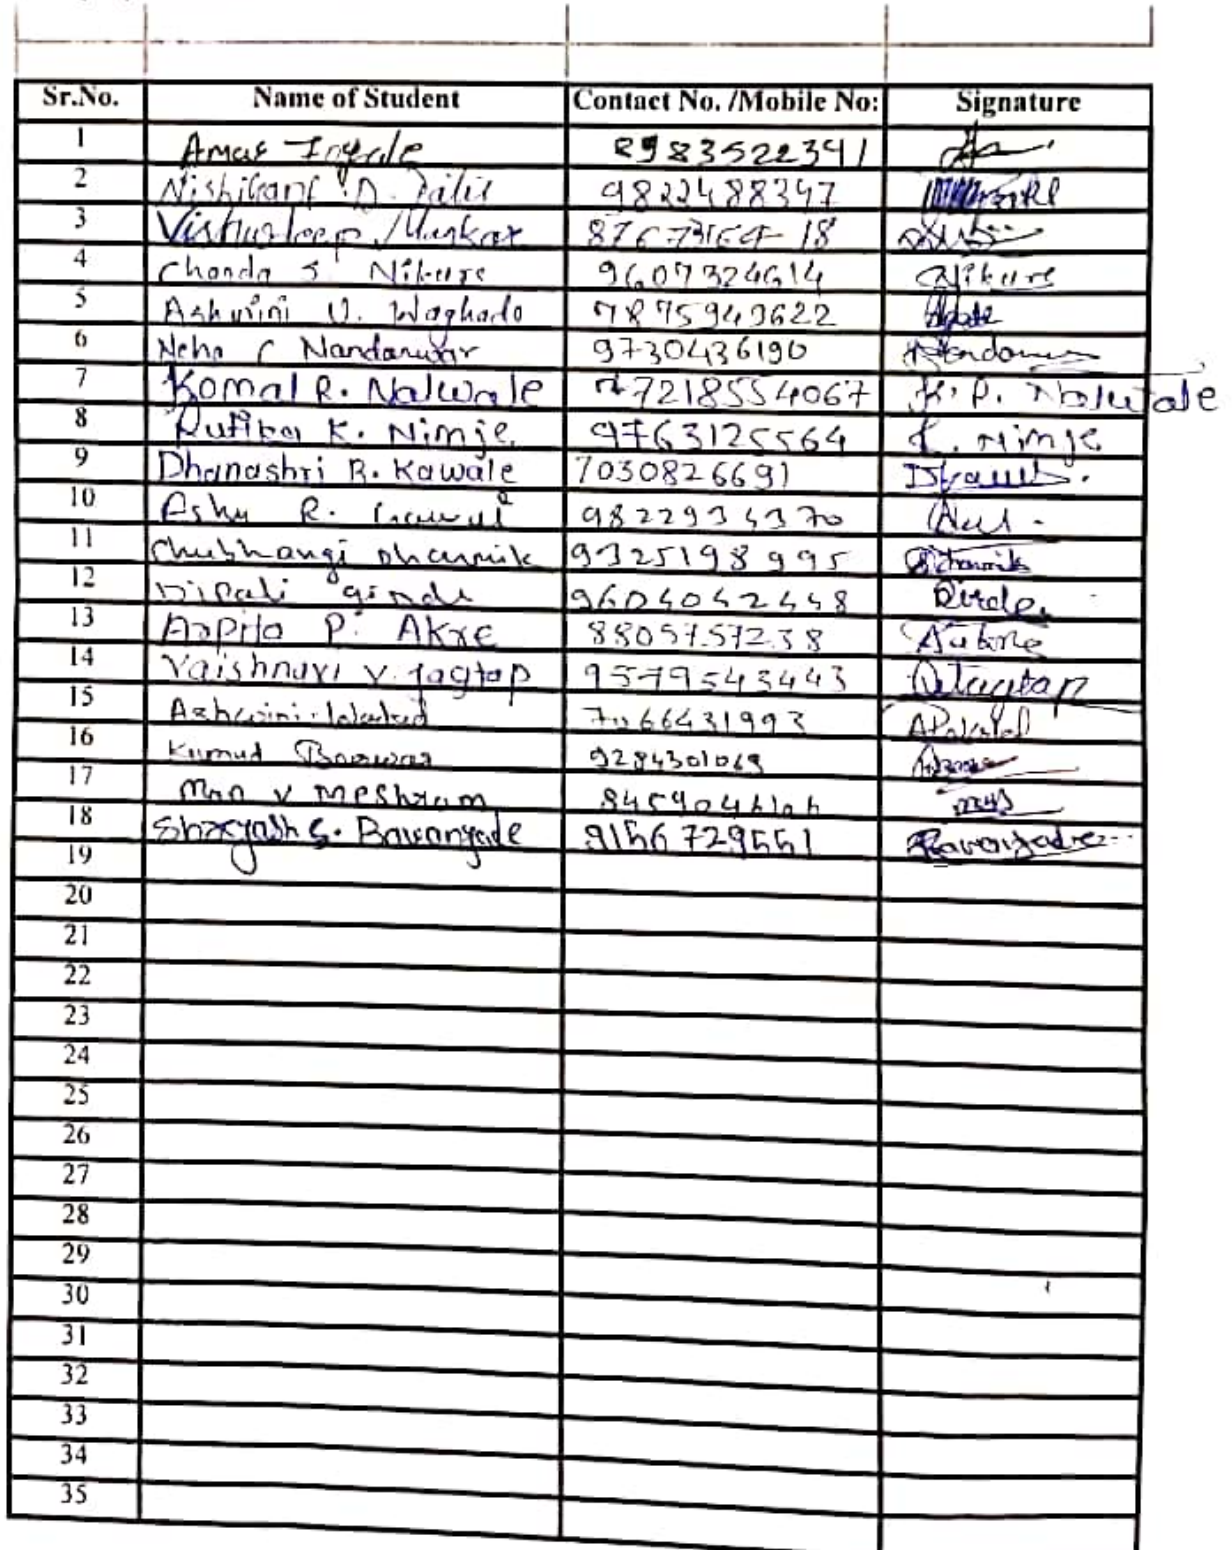 Sr.No. Name of Student Contact No. /Mobile No: Signature
1 Amar Ingale 8983522341
2 Nishikant D. Patil 9822488347
3 8767
4 Chanda S. Nikure 9607324614 Nikure
5 Ashwini V. Waghade 7875943622
6 Neha C Nandanwar 9730436190
7 Komal R. Nalwale 7218554067 K. P. Nalwale
8 K. Nimje 9763125564 K. Nimje
9 Dhanashri R. Kawale 7030826691
10 Ashu R. 9822934370
11 Shubhangi Dharmik 9325198995 Dharmik
12 Dipali 9604042448
13 Arpita P. Akre 8805757238
14 Vaishnavi V. Jagtap 9579543443 Jagtap
15 Ashwini 7066431993
16 Kumud Barwar 9284301069
17 V Meshram
18 Shreyash S. Bawangade 9156729551 Bawangade
19
20
21
22
23
24
25
26
27
28
29
30
31
32
33
34
35